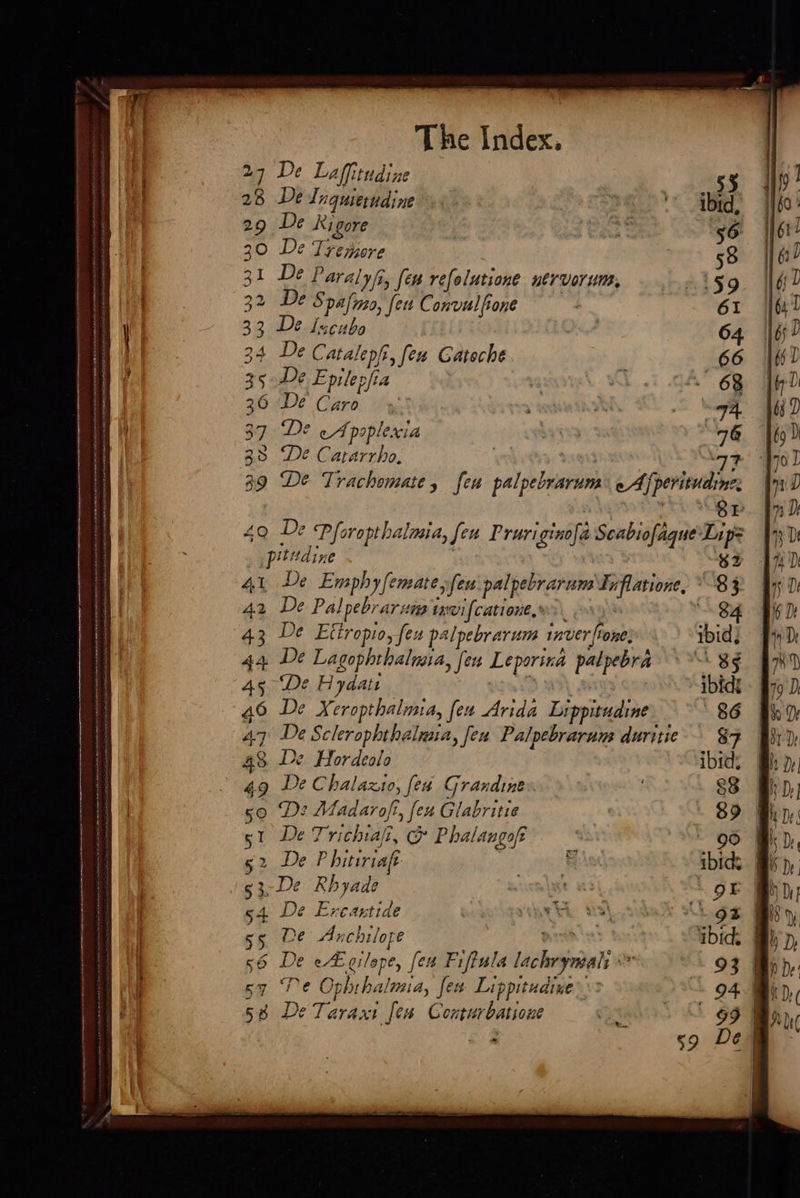 The Index.
27 De Laſſitudine 55
28 De Inquietudine ibid,
29 De Rigore 56
30 De Tremore 58
31 De Paralyſi, ſeu reſolutione nervorum, 59
32 De Spaſmo, ſeu Convulſione 61
33 De Incubo 64
34 De Catalepſi, ſeu Catoche 66
35 De Epilepſia 68
36 De Caro 74
37 De Apoplexia 76
38 De Catarrho, 77
39 De Trachomate, ſeu palpebrarum Aſperitudine;
81
40 De Pſoropthalmia, ſeu Pruriginoſâ Scabioſâque Lip-
pitudine 82
41 De Emphyſemate, ſeu palpebrarum Inflatione, 83
42 De Palpebrarum inviſcatione, 84
43 De Ectropio, ſeu palpebrarum inverſione; ibid;
44 De Lagophthalmia, ſeu Leporinâ palpebrâ 85
45 De Hydati ibid:
46 De Xeropthalmia, ſeu Aridâ Lippitudine 86
47 De Sclerophthalmia, ſeu Palpebrarum duritie 87
48 De Hordeolo ibid;
49 De Chalazio, ſeu Grandine 88
50 De Madaroſi, ſeu Glabritie 89
51 De Trichiaſi, & Phalangoſi 90
52 De Phitiriaſi ibid;
53 De Rhyade 91
54 De Encantide 92
55 De Anchilope ibid;
56 De Ægilope, ſeu Fiſtula lachrymali 93
57 De Ophthalmia, ſeu Lippitudine 94
58 De Taraxi ſeu Conturbatione 99
59 De